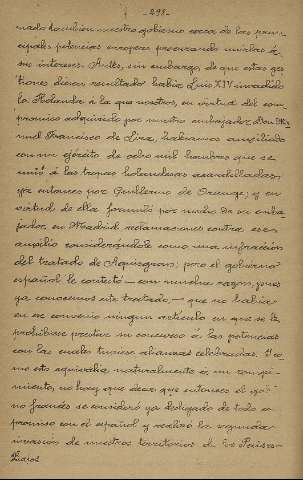 - 298 -
mado tambien nuestro gobierno cerca de las prin-
cipales potencias europeas procurando unirlas á
sus intereses. Antes, sin embargo, de que estas ges-
tiones dieran resultado habia Luis XIV invadido
la Holanda á la que nosotros, en virtud del com-
promiso adquirido por nuestro embajador Don Ma-
nuel Francisco de Lira, habiamos auxiliado
con un ejército de ocho mil hombres que se
unió á las tropas holandesas acaudilladas
ya entonces por Guillermo de Orange; y en
virtud de ella formuló por medio de su emba-
jador en Madrid reclamaciones contra ese
auxilio considerándole como una infracción
del tratado de Aquisgran; pero el gobierno
español le contestó — con mucha razon, pues
ya conocemos este tratado, — que no habia
en ese convenio ningun articulo en que se le
prohibiese prestar su concurso á las potencias
con las cuales tuviese alianzas celebradas. Y co-
mo esto equivalia naturalmente á un rompi-
miento, no hay que decir que entonces el gobier-
no francés se consideró ya desligado de todo com-
promiso con el español y realizó la segunda
invasión de nuestros territorios de los Paises-
Bajos